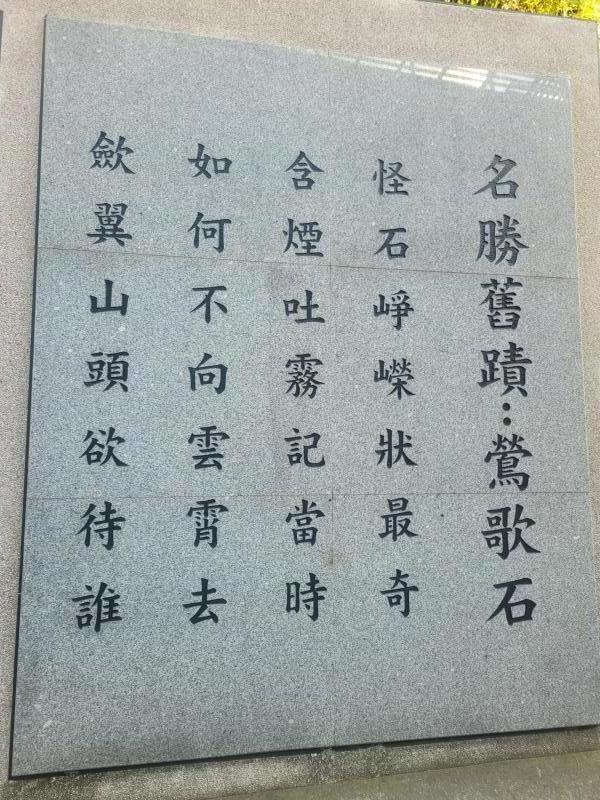 名勝舊蹟：鶯歌石
怪石崢嶸狀最奇
含煙吐霧記當時
如何不向雲霄去
歛翼山頭欲待誰